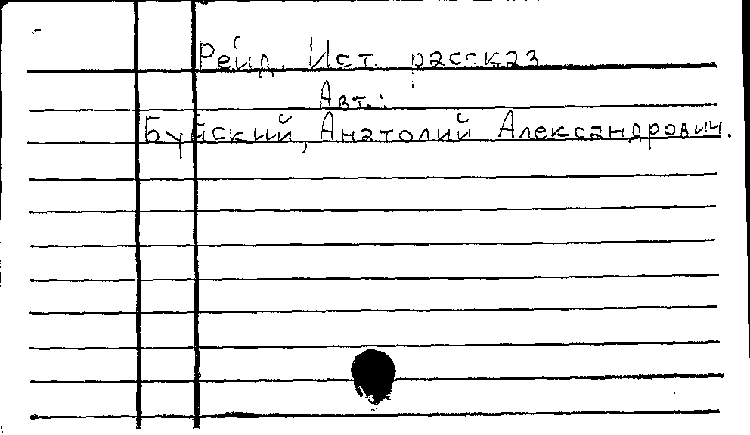 Рейд. Ист. рассказ
Авт.:
Буйский, Анатолий Александрович.